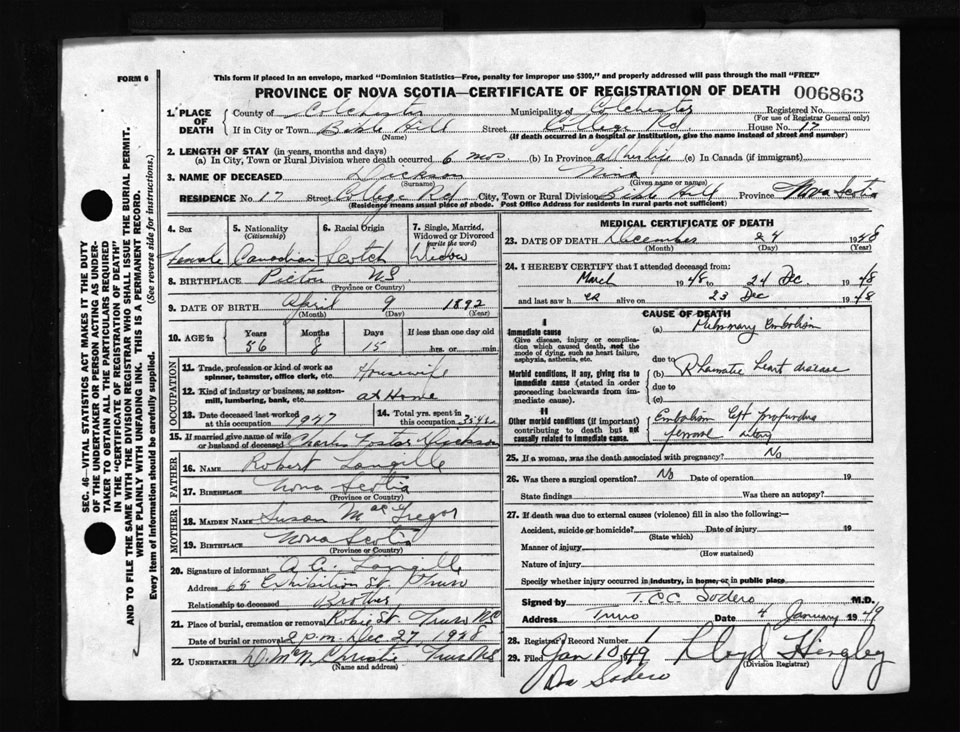 FORM 6
This form if placed in an envelope, marked "Dominion Statistics—Free, penalty for improper use $300," and properly addressed will pass through the mail "FREE"
PROVINCE OF NOVA SCOTIA—CERTIFICATE OF REGISTRATION OF DEATH 006863
1. PLACE OF DEATH
County of Colchester Municipality of Colchester Registered No.
(For use of Registrar General only)
If in City or Town Bible Hill Street College Rd. House No. 17
(Name) (If death occurred in a hospital or institution, give the name instead of street and number)
2. LENGTH OF STAY (in years, months and days)
(a) In City, Town or Rural Division where death occurred 6 mos. (b) In Province all her life (c) In Canada (if immigrant)
3. NAME OF DECEASED Dickson Nina
(Surname) (Given name or names)
RESIDENCE No. 17 Street College Rd City, Town or Rural Division Bible Hill Province Nova Scotia
(Residence means usual place of abode. Post Office Address for residents in rural parts not sufficient)
4. Sex
Female
5. Nationality
(Citizenship)
Canadian
6. Racial Origin
Scotch
7. Single, Married, Widowed or Divorced
(write the word)
Widow
8. BIRTHPLACE Pictou NS
(Province or Country)
9. DATE OF BIRTH April 9 1892
(Month) (Day) (Year)
10. AGE in
Years Months Days If less than one day old
56 8 15 hrs. or min.
OCCUPATION
11. Trade, profession or kind of work as spinner, teamster, office clerk, etc. Housewife
12. Kind of industry or business, as cotton-mill, lumbering, bank, etc. at Home
13. Date deceased last worked at this occupation 1947
14. Total yrs. spent in this occupation
15. If married give name of wife or husband of deceased Charles Foster Dickson
FATHER
16. NAME Robert Langille
17. BIRTHPLACE Nova Scotia
(Province or Country)
MOTHER
18. MAIDEN NAME Susan MacGregor
19. BIRTHPLACE Nova Scotia
(Province or Country)
20. Signature of informant Langille
Address 65 Exhibition St. Truro
Relationship to deceased Brother
21. Place of burial, cremation or removal Robie St. Truro NS
Date of burial or removal 2 p.m. Dec. 27, 1948
22. UNDERTAKER D. McN. Christie Truro NS
(Name and address)
MEDICAL CERTIFICATE OF DEATH
23. DATE OF DEATH December 24 1948
(Month) (Day) (Year)
24. I HEREBY CERTIFY that I attended deceased from:
March 1948 to 24 Dec 1948
and last saw her alive on 23 Dec 1948
CAUSE OF DEATH
I
Immediate cause
Give disease, injury or complication which caused death, not the mode of dying, such as heart failure, asphyxia, asthenia, etc.
(a) Pulmonary Embolism
due to
Morbid conditions, if any, giving rise to immediate cause (stated in order proceeding backwards from immediate).
(b) Rheumatic heart disease
due to
(c)
II
Other morbid conditions (if important) contributing to death but not causally related to immediate cause.
Embolism left profundus
femoral artery
25. If a woman, was the death associated with pregnancy? No
26. Was there a surgical operation? No Date of operation 19
State findings Was there an autopsy?
27. If death was due to external causes (violence) fill in also the following:—
Accident, suicide or homicide? Date of injury 19
(State which)
Manner of injury
(How sustained)
Nature of injury
Specify whether injury occurred in industry, in home, or in public place
Signed by T. C. C. Sodero M.D.
Address Truro Date 4 January 1949
28. Registrar's Record Number 1
29. Filed Jan 10/49 Lloyd Hingley
(Division Registrar)
Dr Sodero
SEC. 46—VITAL STATISTICS ACT MAKES IT THE DUTY
OF THE UNDERTAKER OR PERSON ACTING AS UNDER-
TAKER TO OBTAIN ALL THE PARTICULARS REQUIRED
IN THE "CERTIFICATE OF REGISTRATION OF DEATH"
AND TO FILE THE SAME WITH THE DIVISION REGISTRAR WHO SHALL ISSUE THE BURIAL PERMIT.
WRITE PLAINLY WITH UNFADING INK. THIS IS A PERMANENT RECORD.
Every item of information should be carefully supplied. (See reverse side for instructions.)